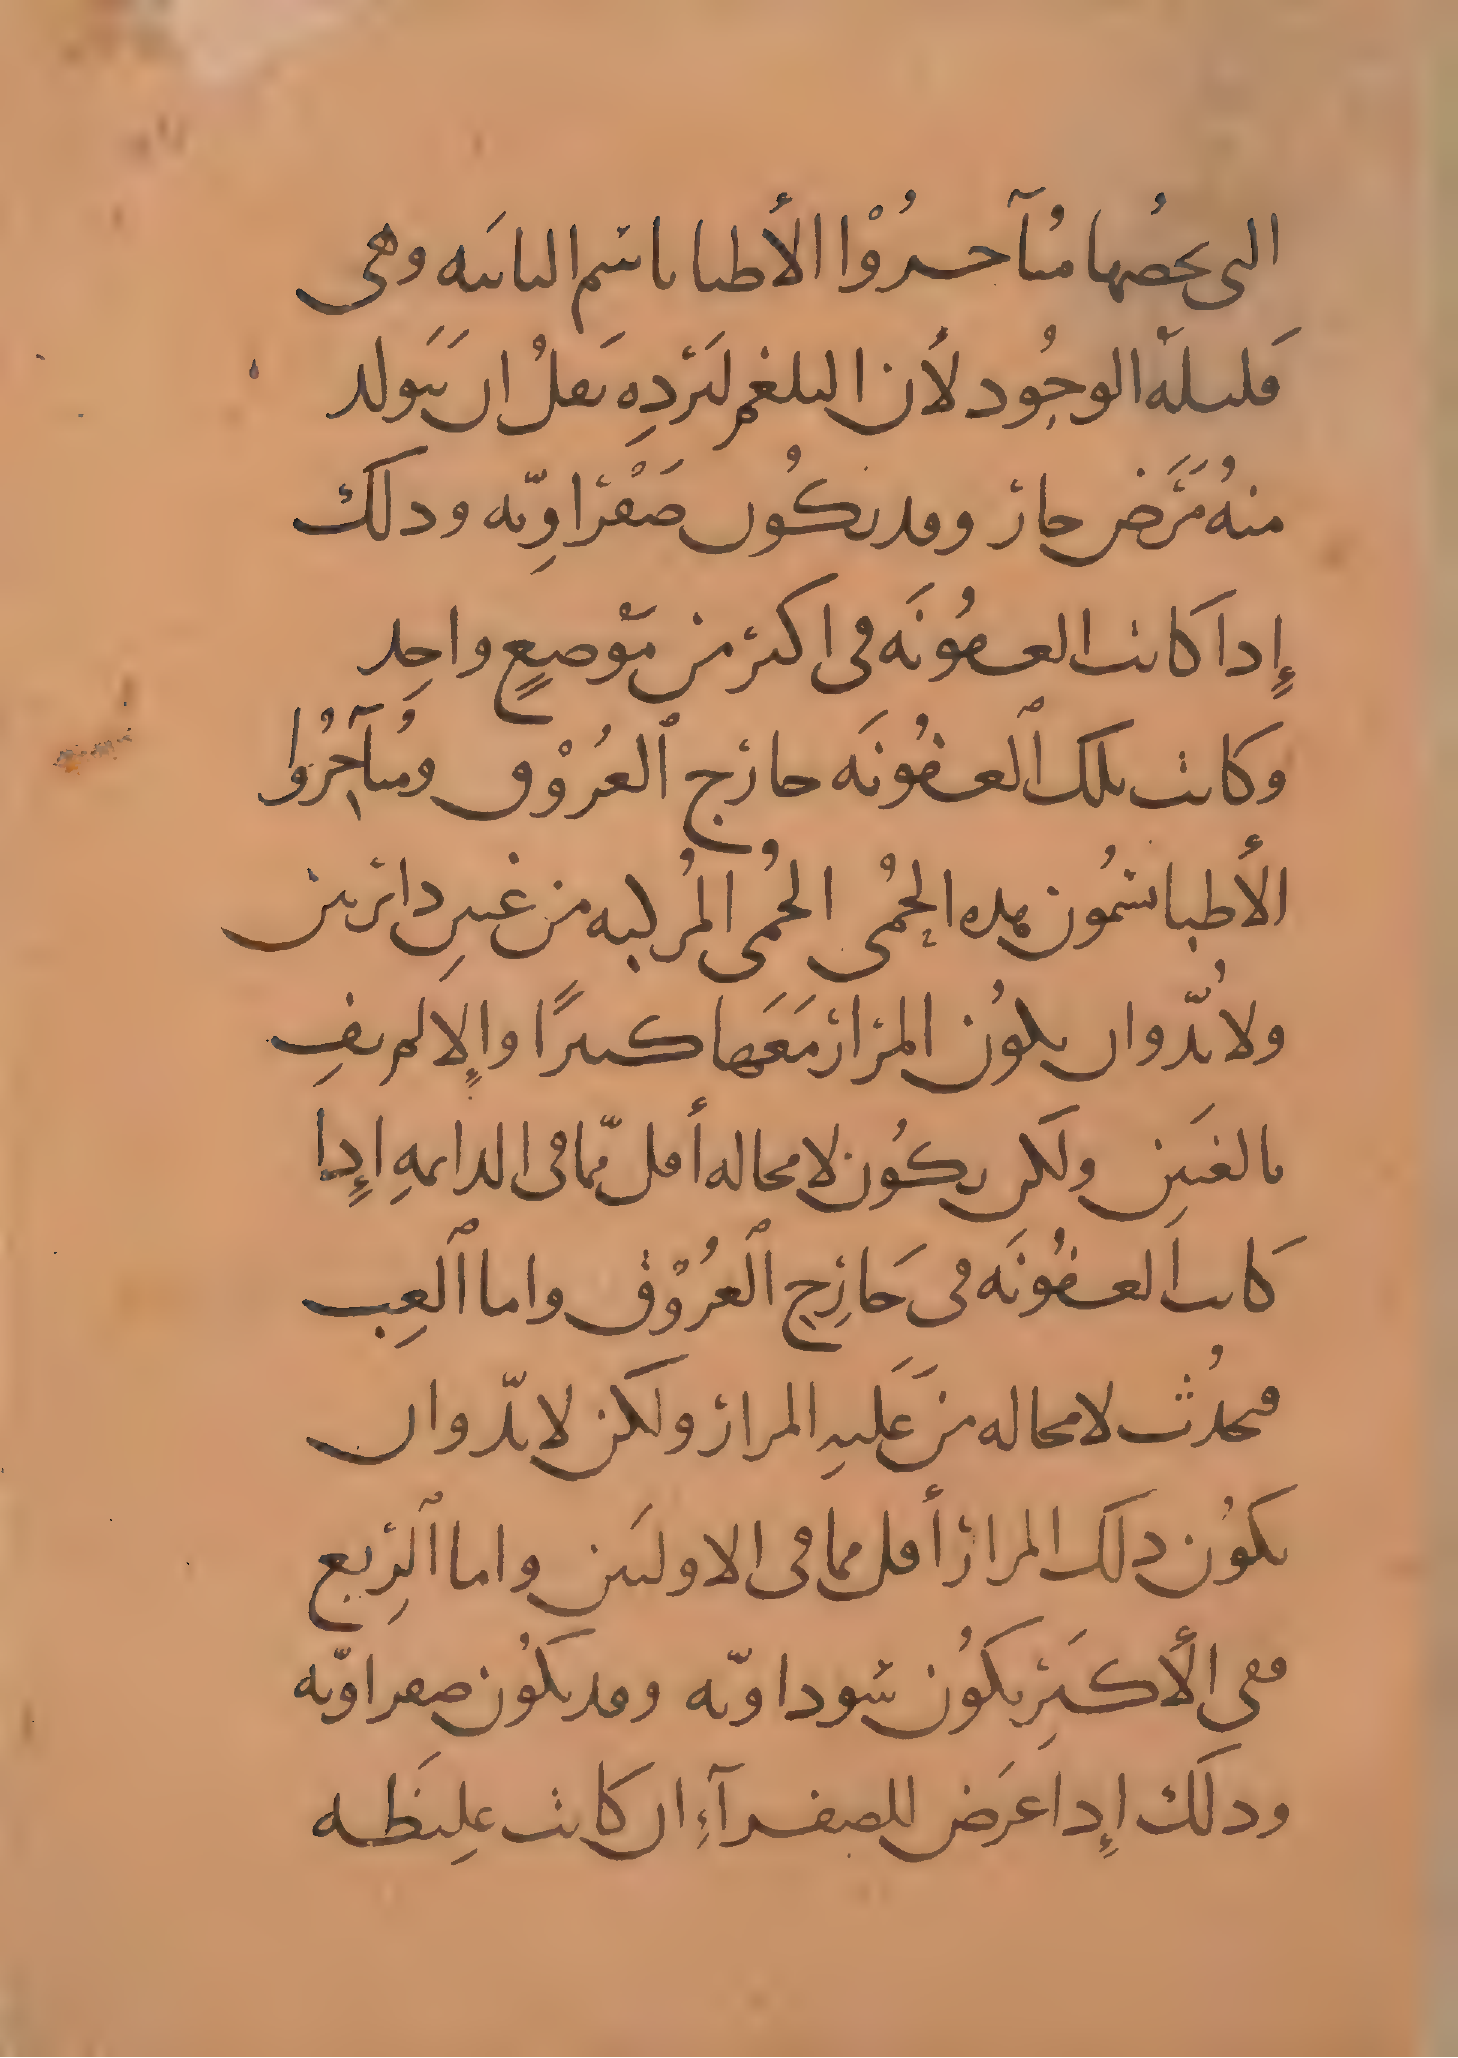 التى يخصها متآخروا الأطبا باسم النائبه وهى
قليله الوجود لأن البلغم لبرده يقل ان يتولد
منه مرض حار وقد يكون صفراويه وذلك
إذا كانت العفونه فى اكثر من موضع واحد
وكانت تلك العفونه خارج العروق ومتآخروا
الأطبا يسمون هذه الحمى الحمى المركبه من غير دائرتين
ولا بد وان يكون المرار معها كثيرًا وإلا لم يف
بالغبين ولكن يكون لا محاله أقل مما فى الدايمه إذا
كانت العفونه فى خارج العروق واما الغب
فيحدث لا محاله من غلبه المرار ولكن لا بد وان
يكون ذلك المرار أقل مما فى الاوليين واما الربع
ففى الأكثر يكون سوداويه وقد يكون صفراويه
وذلك إذا عرض للصفرآء ان كانت غليظه